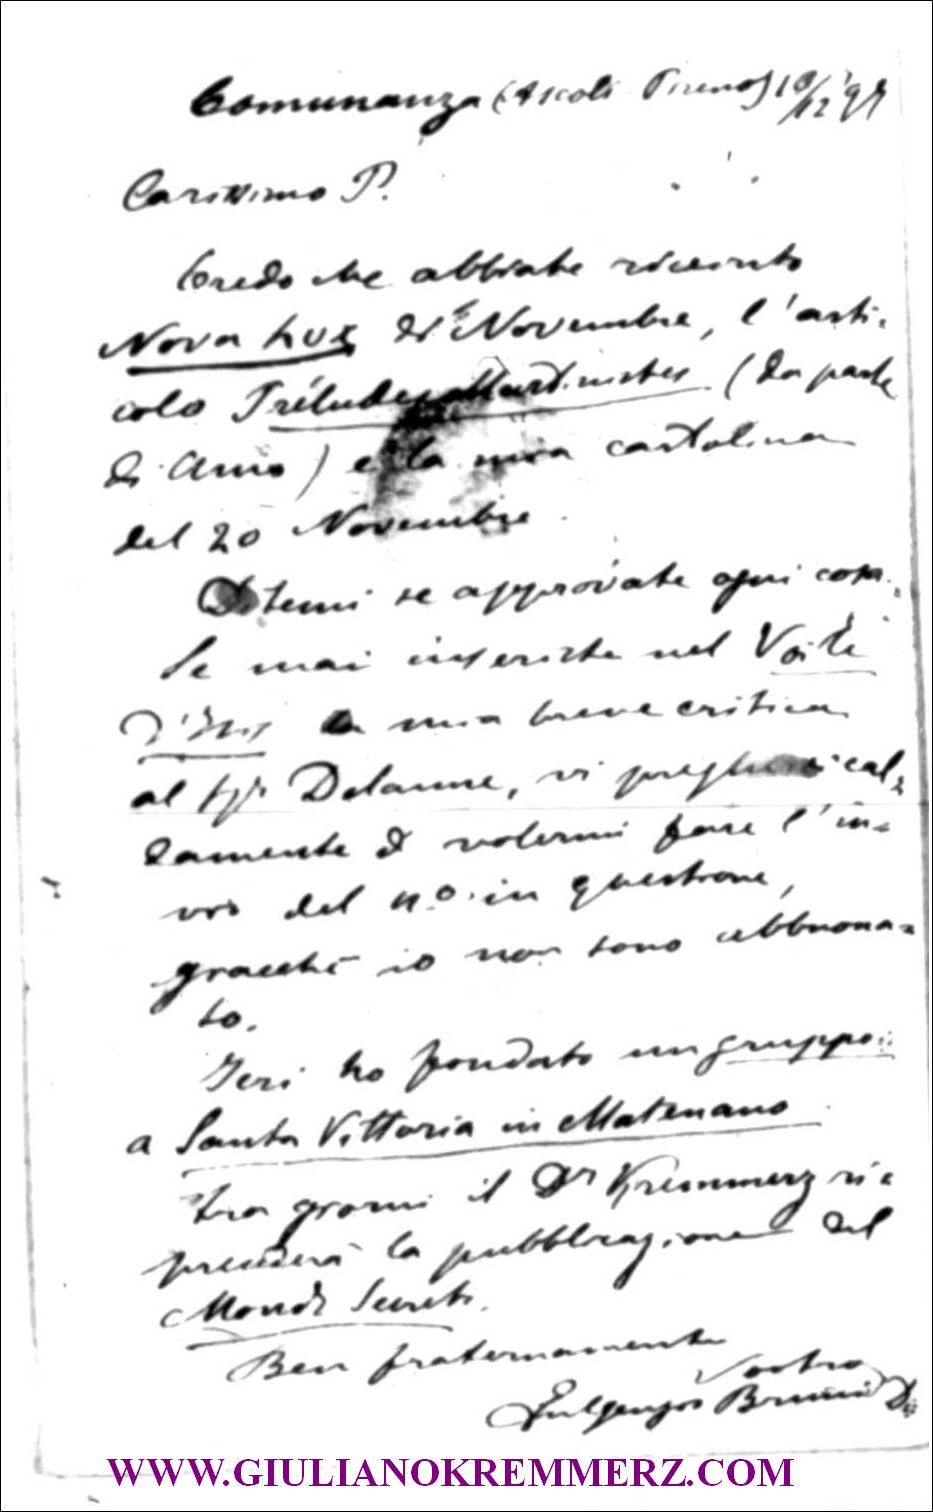 Comunanza (Ascoli Piceno) 10/12 '97
Carissimo P.
Credo che abbiate ricevuto
Nova Lux di Novembre, l'arti-
colo Préludes Martinistes (da parte
di Amo) e la mia cartolina
del 20 Novembre.
Ditemi se approvate ogni cosa.
Se mai inserirete nel Voile
D'Isis la mia breve critica
al Sig. Delanne, vi pregherei cal-
damente di volermi fare l'in-
vio del n.o in questione,
giacchè io non sono abbuona-
to.
Ieri ho fondato un gruppo
a Santa Vittoria in Matenano
Tra giorni il Dr Kremmerz ri-
prenderà la pubblicazione del
Mondo Secreto.
Ben fraternamente
Vostro
Fulgenzio Bruni
WWW.GIULIANOKREMMERZ.COM